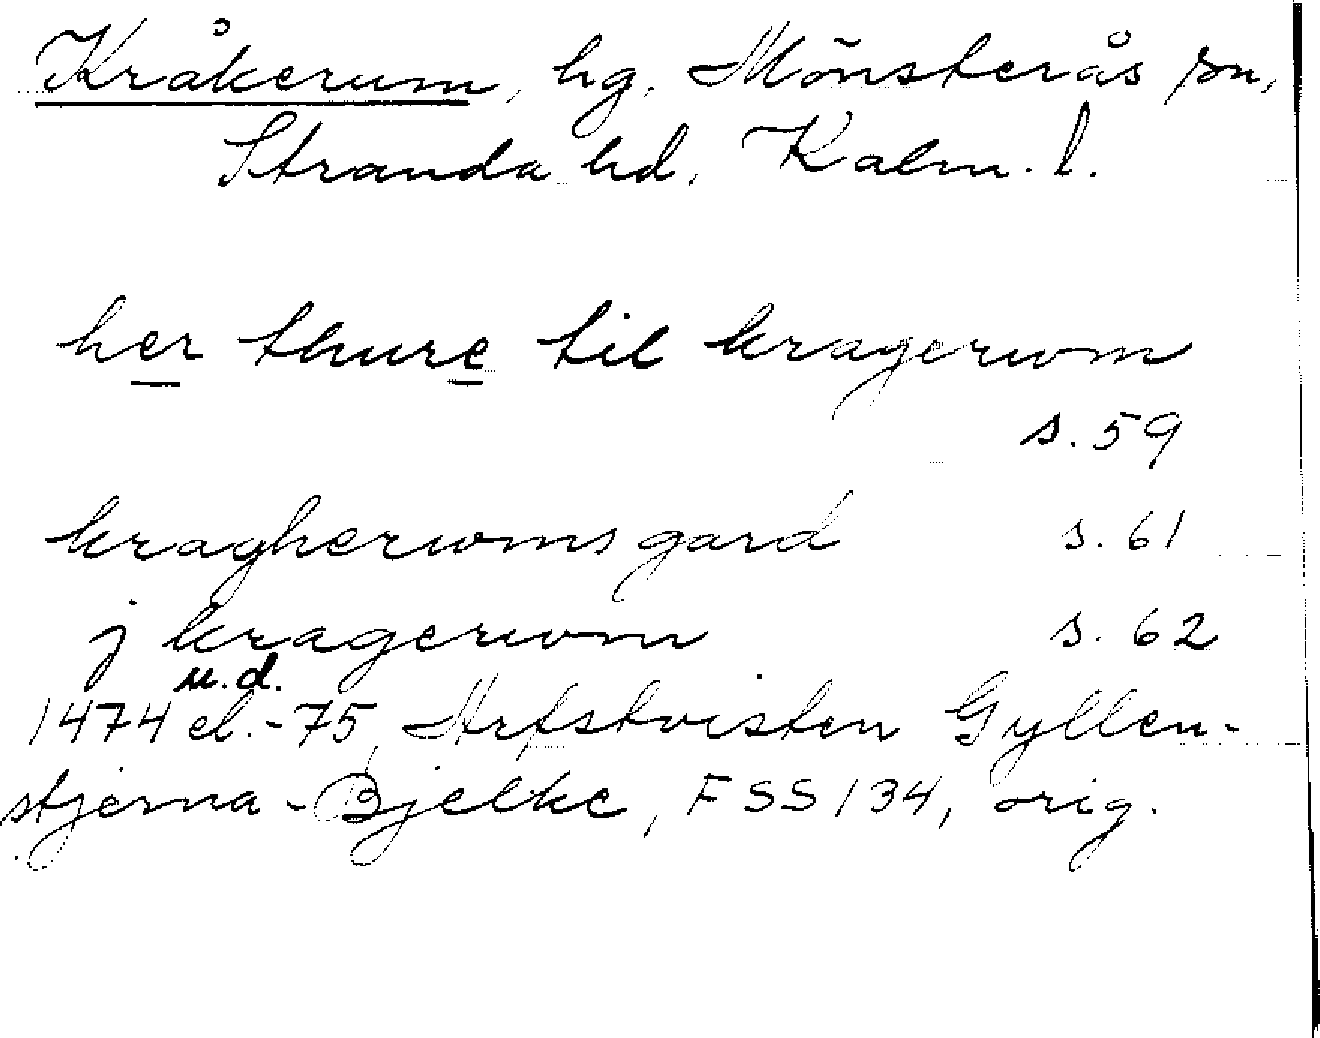 Kråkerum, hg, Mönsterås sn,
Stranda hd, Kalm. l.
her thure til kragerwm
s. 59
kragherwms gard s. 61
j kragerwm s. 62
u.d.
1474 el. -75, Arfstvisten Gyllen-
stjerna - Bjelke, FSS 134, orig.